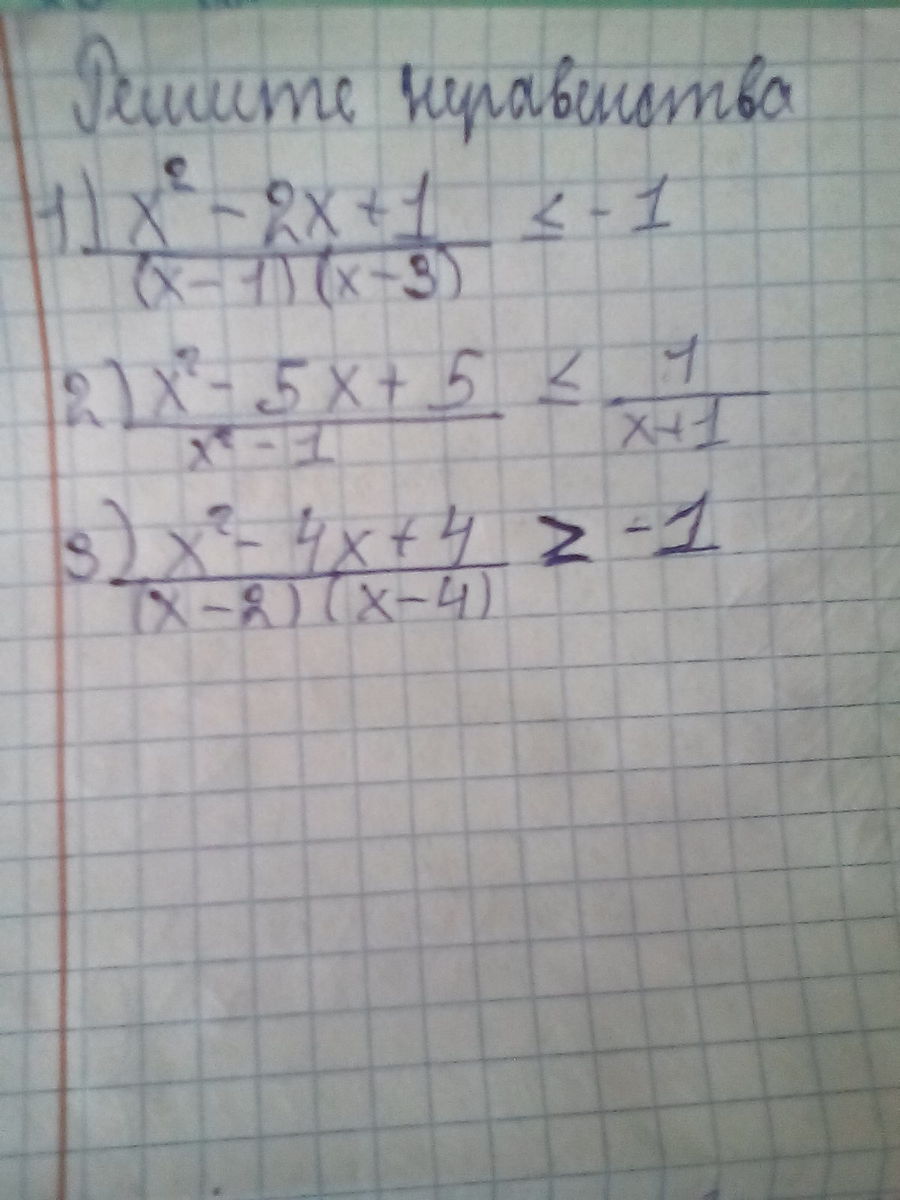 Решите неравенства
1) x² - 2x + 1 ≤ - 1
(x - 1) (x - 3)
2) x² - 5x + 5 ≤ 1
x² - 1 x + 1
3) x² - 4x + 4 ≥ - 1
(x - 2) (x - 4)